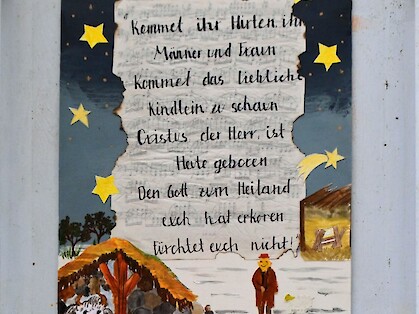 "Kommet ihr Hirten, ihr
Männer und Fraun
Kommet das liebliche
Kindlein zu schaun
Cristus der Herr ist
Heute geboren
Den Gott zum Heiland
euch hat erkoren
Fürchtet euch nicht!"